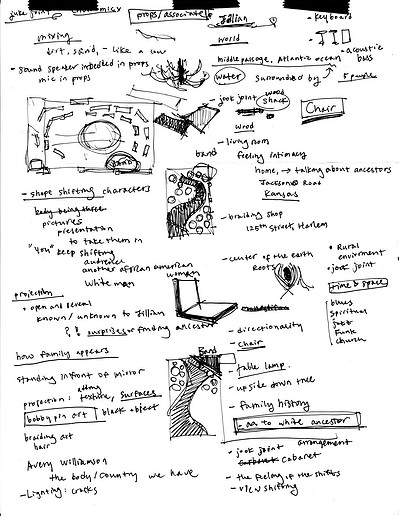 juke joint
props/associate
Jillian
• keyboard
mixing
world
dirt, sand, - like a
middle passage, Atlantic ocean
• acoustic bass
- sound speaker imbedded in props
mic in props
water surrounded by
5 panels
jook joint wood shack
Chair
wood
- living room
band
band
feeling intimacy
home, → talking about ancestors
- shape shifting characters
Jackson Road
Kansas
body being there
pictures
presentation
to take them in
- braiding shop
125th street, Harlem
"you" keep shifting
audience
another african american
woman
white man
- center of the earth
Roots
• Rural
envirment
• jook joint
projection
time & space
• open and reveal
known/unknown to Jillian
? ! surprises or finding ancestor
blues
Spiritual
jazz
Funk
church
- directionality
how family appears
- chair
Band
standing infront of mirror
- table lamp.
projection: texture, surfaces
- upside down tree
bobby pin art
black object
- family history
braiding art
hair
- aa to white ancestor
Avery Williamson
- jook joint arrangement
cabaret
the body/country we have
- the feeling of the shifts
- Lighting: cracks
- view shifting